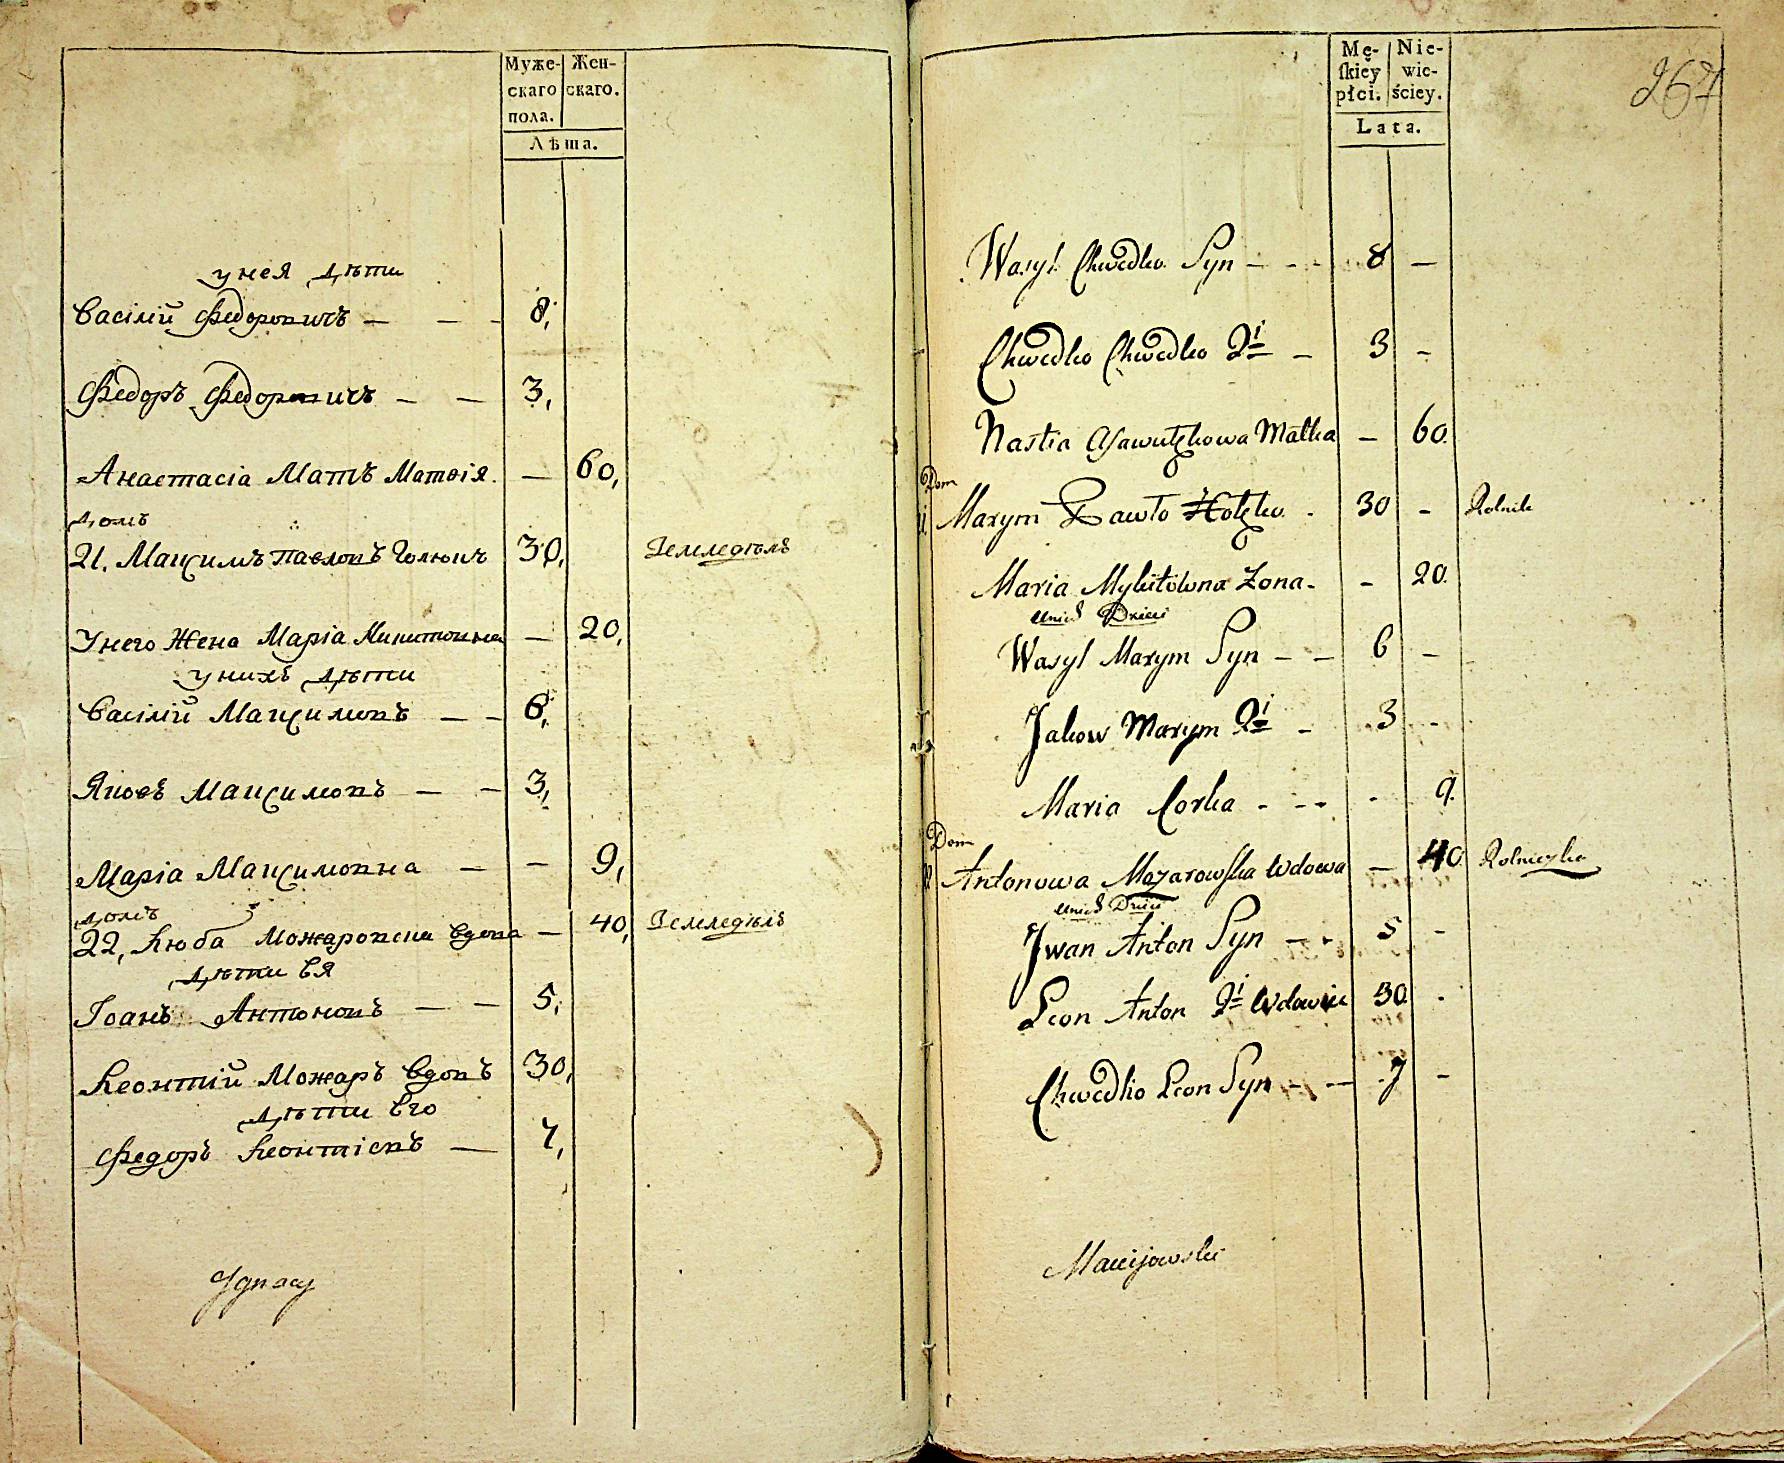 Муже- Жен-
скаго скаго.
пола.
Лѣта.
у нея дѣти
Василій Федоровичъ — — - 8,
Федоръ Федоровичъ — — 3,
Анастасіа Мать Матвія. — 60,
домъ
21. Максимъ Павловъ Голювъ 30, Земледѣлъ
У него Жена Маріа Никитовна — 20,
у нихъ дѣти
Василій Максимовъ — - 6,
Яковъ Максимовъ — - 3,
Маріа Максимовна — — 9,
домъ
22, Люба Можаровски вдова — 40, Земледѣлъ
дѣти Ея
Іоанъ Антоновъ — — 5,
Леонтій Можаръ Вдовъ 30,
дѣти Его
Федоръ Леонтіевъ — 7,
Ignacy
Mę- Nie-
skiey wie-
płci. ściey.
Lata.
267
Wasyl Chwedko Syn - - - 8 —
Chwedko Chwedko 2i — 3 -
Nastia Matka — 60.
Dom
Maxym Pawło - 30 - Rolnik
Maria Mykitowna Zona - - 20.
unich Dzieci
Wasyl Maxym Syn — — 6 —
Jakow Maxym 2i - 3 -
Maria Corka - - - - 9.
Dom
Antonowa Mozarowska Wdowa — 40 Rolniczka
unich Dzieci
Jwan Anton Syn - - 5 -
Leon Anton 2i Wdowiec 30 -
Chwedko Leon Syn - — 7 -
Maciejowski